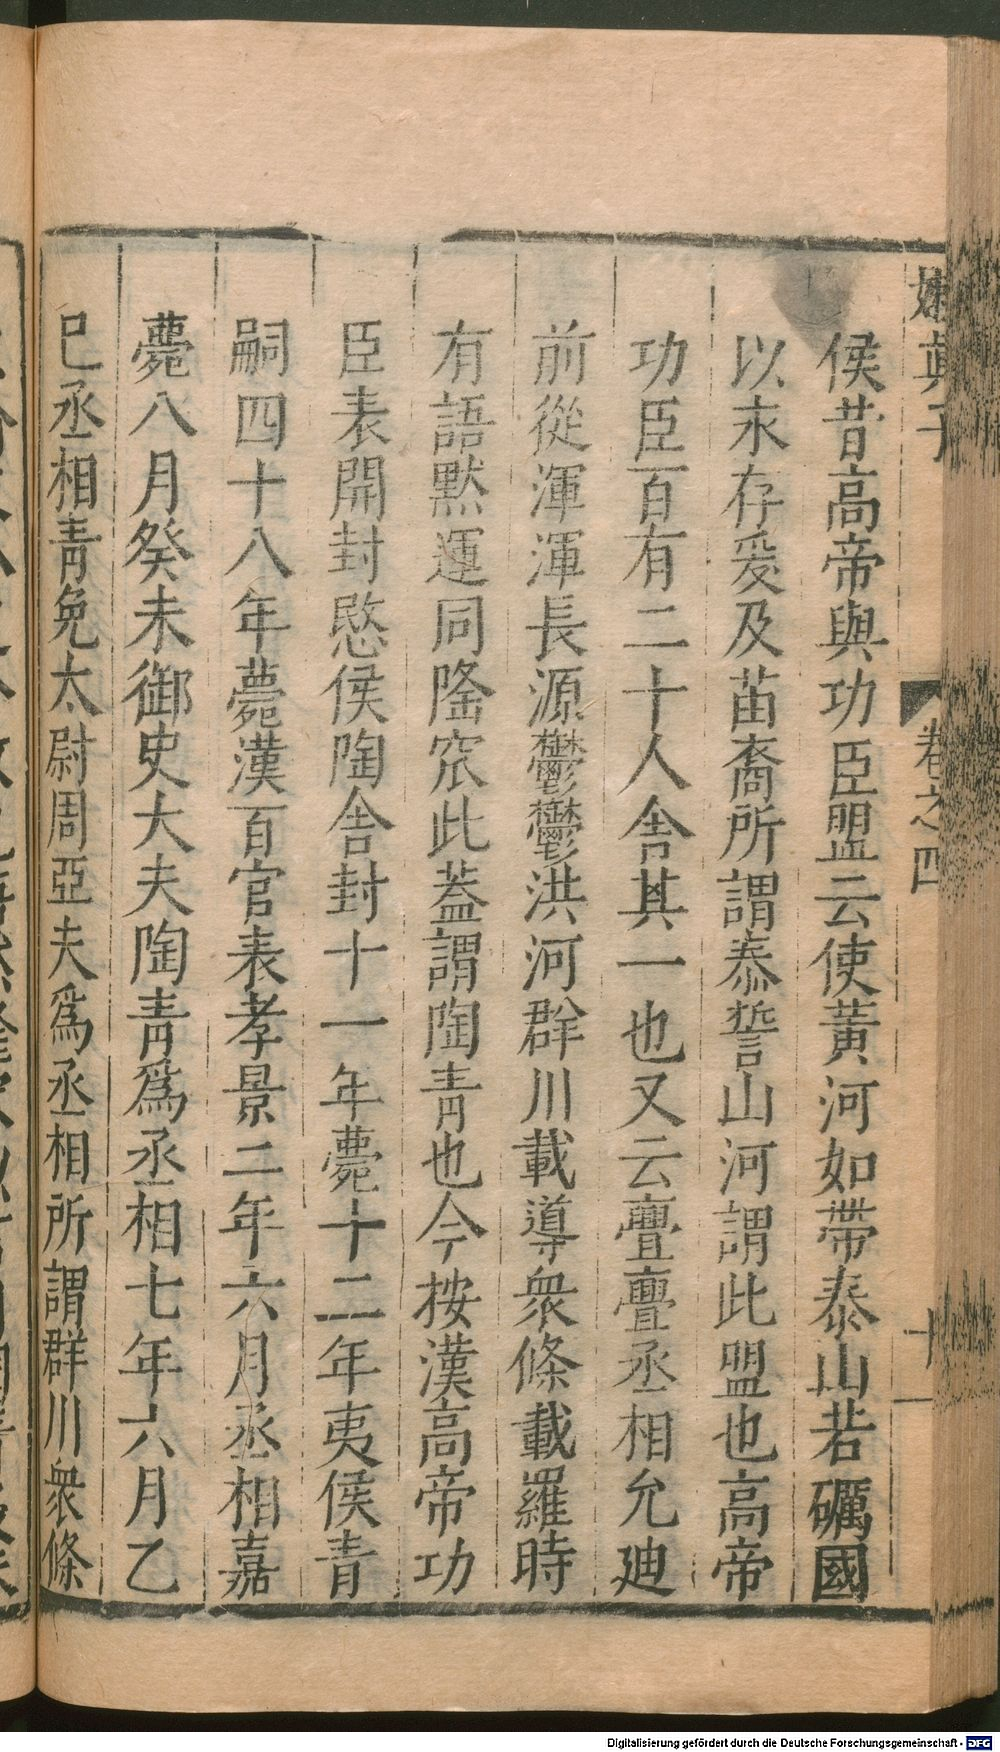 嬾眞子
卷之四
十一
侯昔高帝與功臣盟云使黃河如帶泰山若礪國
以永存爰及苗裔所謂泰誓山河謂此盟也高帝
功臣百有二十人舎其一也又云亹亹丞相允迪
前從渾渾長源鬱鬱洪河群川載導衆條載羅時
有語黙運同隆窊此葢謂陶靑也今按漢高帝功
臣表開封愍侯陶舎封十一年薨十二年夷侯青
嗣四十八年薨漢百官表孝景二年六月丞相嘉
薨八月癸未御史大夫陶靑爲丞相七年六月乙
巳丞相靑免太尉周亞夫爲丞相所謂群川衆條
Digitalisierung gefördert durch die Deutsche Forschungsgemeinschaft - DFG